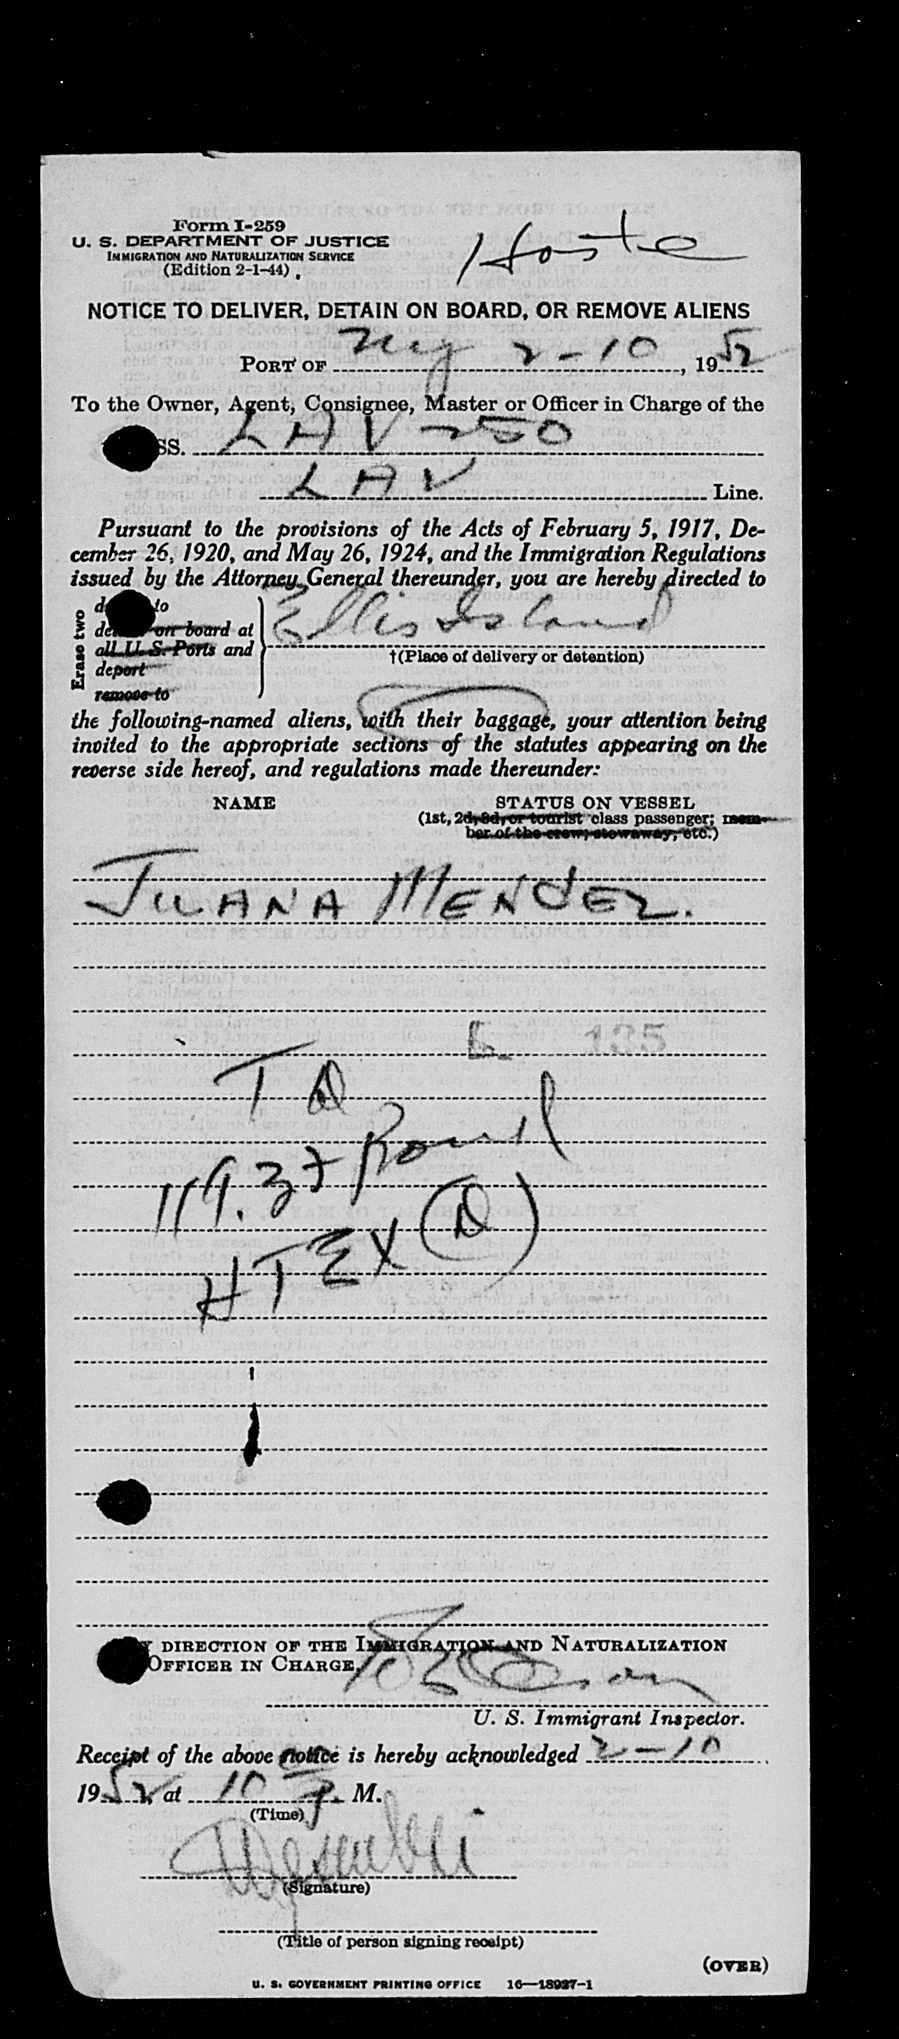 Form I-259
U. S. DEPARTMENT OF JUSTICE
IMMIGRATION AND NATURALIZATION SERVICE
(Edition 2-1-44)
Hoste
NOTICE TO DELIVER, DETAIN ON BOARD, OR REMOVE ALIENS
PORT OF NY 2-10, 1952
To the Owner, Agent, Consignee, Master or Officer in Charge of the
SS. LAV 250
LAV Line.
Pursuant to the provisions of the Acts of February 5, 1917, De-
cember 26, 1920, and May 26, 1924, and the Immigration Regulations
issued by the Attorney General thereunder, you are hereby directed to
Erase two
to
on board at
all U. S. Ports and
deport
remove to
Ellis Island
†(Place of delivery or detention)
the following-named aliens, with their baggage, your attention being
invited to the appropriate sections of the statutes appearing on the
reverse side hereof, and regulations made thereunder:
NAME STATUS ON VESSEL
(1st, 2d, 3d, or tourist class passenger; mem-
ber of the crew; stowaway, etc.)
JUANA MENDEZ.
125
T D
119.37 Pound
HTEX (D)
BY DIRECTION OF THE IMMIGRATION AND NATURALIZATION
OFFICER IN CHARGE,
U. S. Immigrant Inspector.
Receipt of the above notice is hereby acknowledged 2-10
1952, at 10 P. M.
(Time)
(Signature)
(Title of person signing receipt)
(OVER)
U. S. GOVERNMENT PRINTING OFFICE 16—18927-1